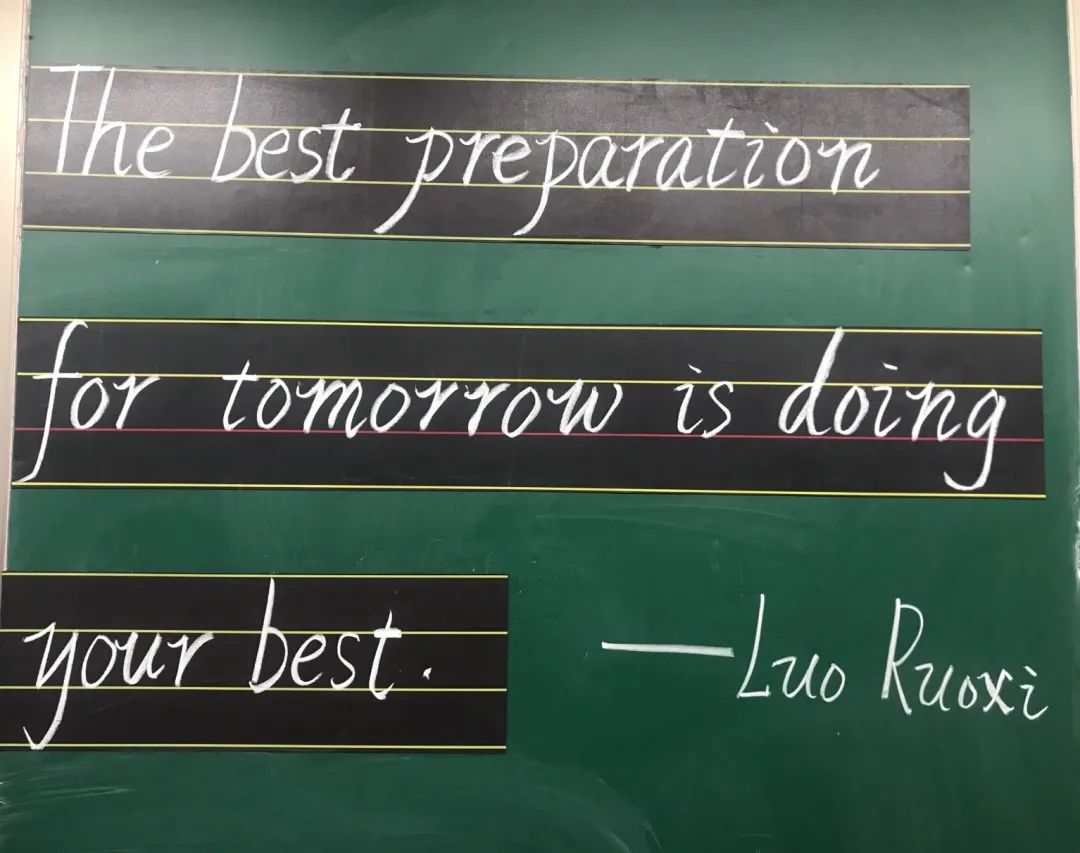 The best preparation
for tomorrow is doing
your best.
—Luo Ruoxi